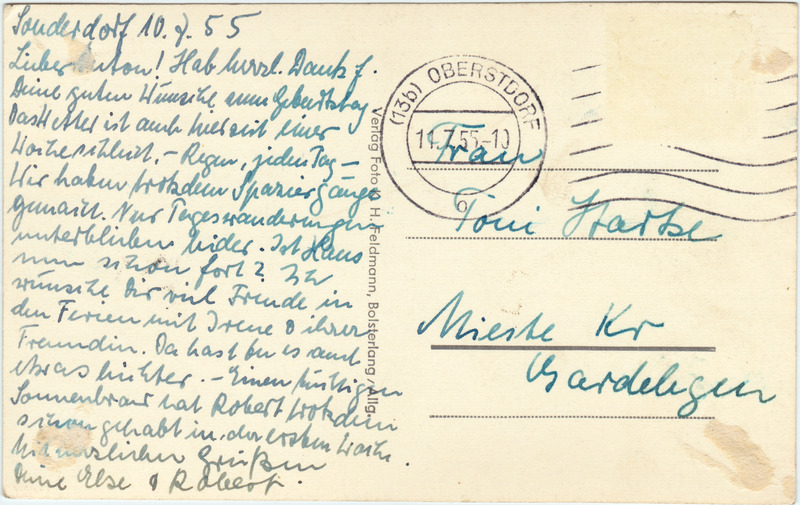 Sonderdorf 10.7.55
Liebe Anton! Hab herzl. Dank f.
Deine guten Wünsche zum Geburtstag
Das Wetter ist auch hier seit einer
Woche schlecht. – Regen, jeden Tag –
Wir haben trotzdem Spaziergänge
gemacht. Nur Tageswanderungen
unterblieben leider. Ist Hans
nun schon fort? Ich
wünsche Dir viel Freude in
den Ferien mit Irene & ihrer
Freundin. Da hast du es auch
etwas leichter. – Einen tüchtigen
Sonnenbrand hat Robert trotzdem
schon gehabt in der ersten Woche
Mit herzlichen Grüßen
Deine Else & Robert.
Verlag Foto H. Feldmann, Bolsterlang/Allg.
(13b) OBERSTDORF
11.7.55-10
b
Frau
Toni
Mieste Kr
Gardelegen